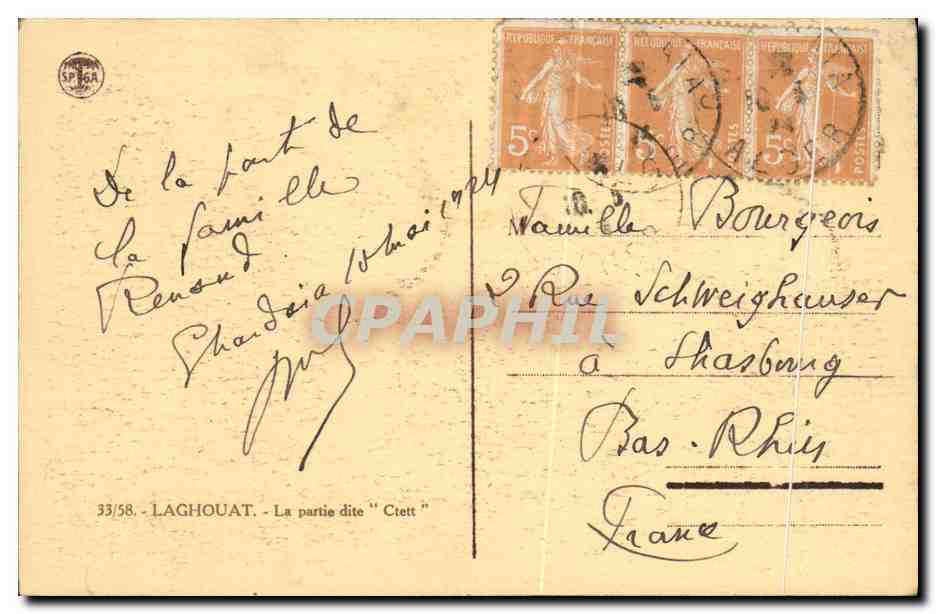 S.P.G.A.
REPUBLIQUE FRANÇAISE
5c POSTES
REPUBLIQUE FRANÇAISE
5c POSTES
REPUBLIQUE FRANÇAISE
5c POSTES
ALGER
De la part de
la famille
Renaud
Ghardaia 10 mai 1924
Famille Bourgeois
2 Rue Schweighauser
à Strasbourg
Bas-Rhin
France
CPAPHIL
33/58. - LAGHOUAT. - La partie dite " Ctett "